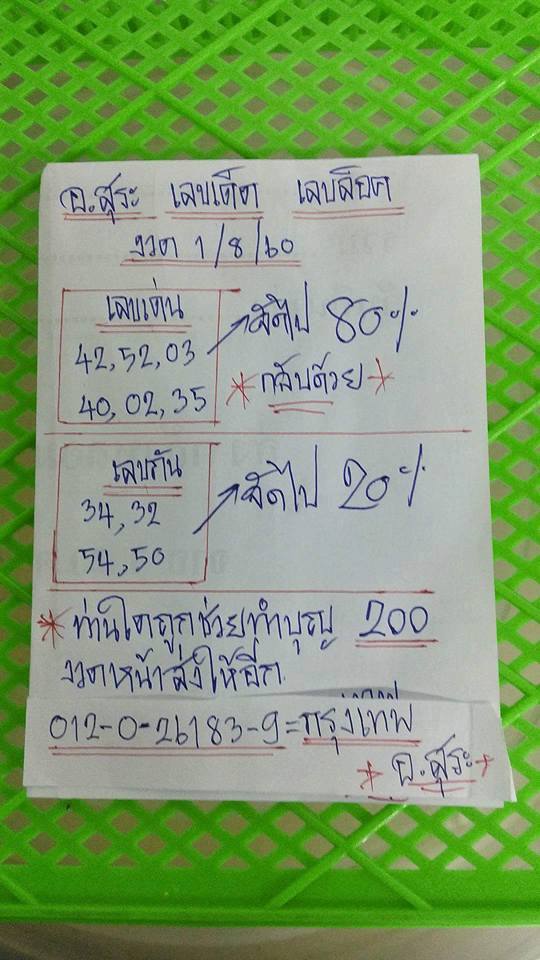 อ.สุระ เลขเด็ด เลขล็อค
งวด 1/8/60
เลขเด่น
42,52,03
40,02,35
จัดไป 80%
*กลับด้วย*
เลขกัน
34,32
54,50
จัดไป 20%
*ท่านใดถูกช่วยทำบุญบู 200
งวดหน้าส่งให้อีก
012-0-26183-9=กรุงเทพ
* อ.สุระ *